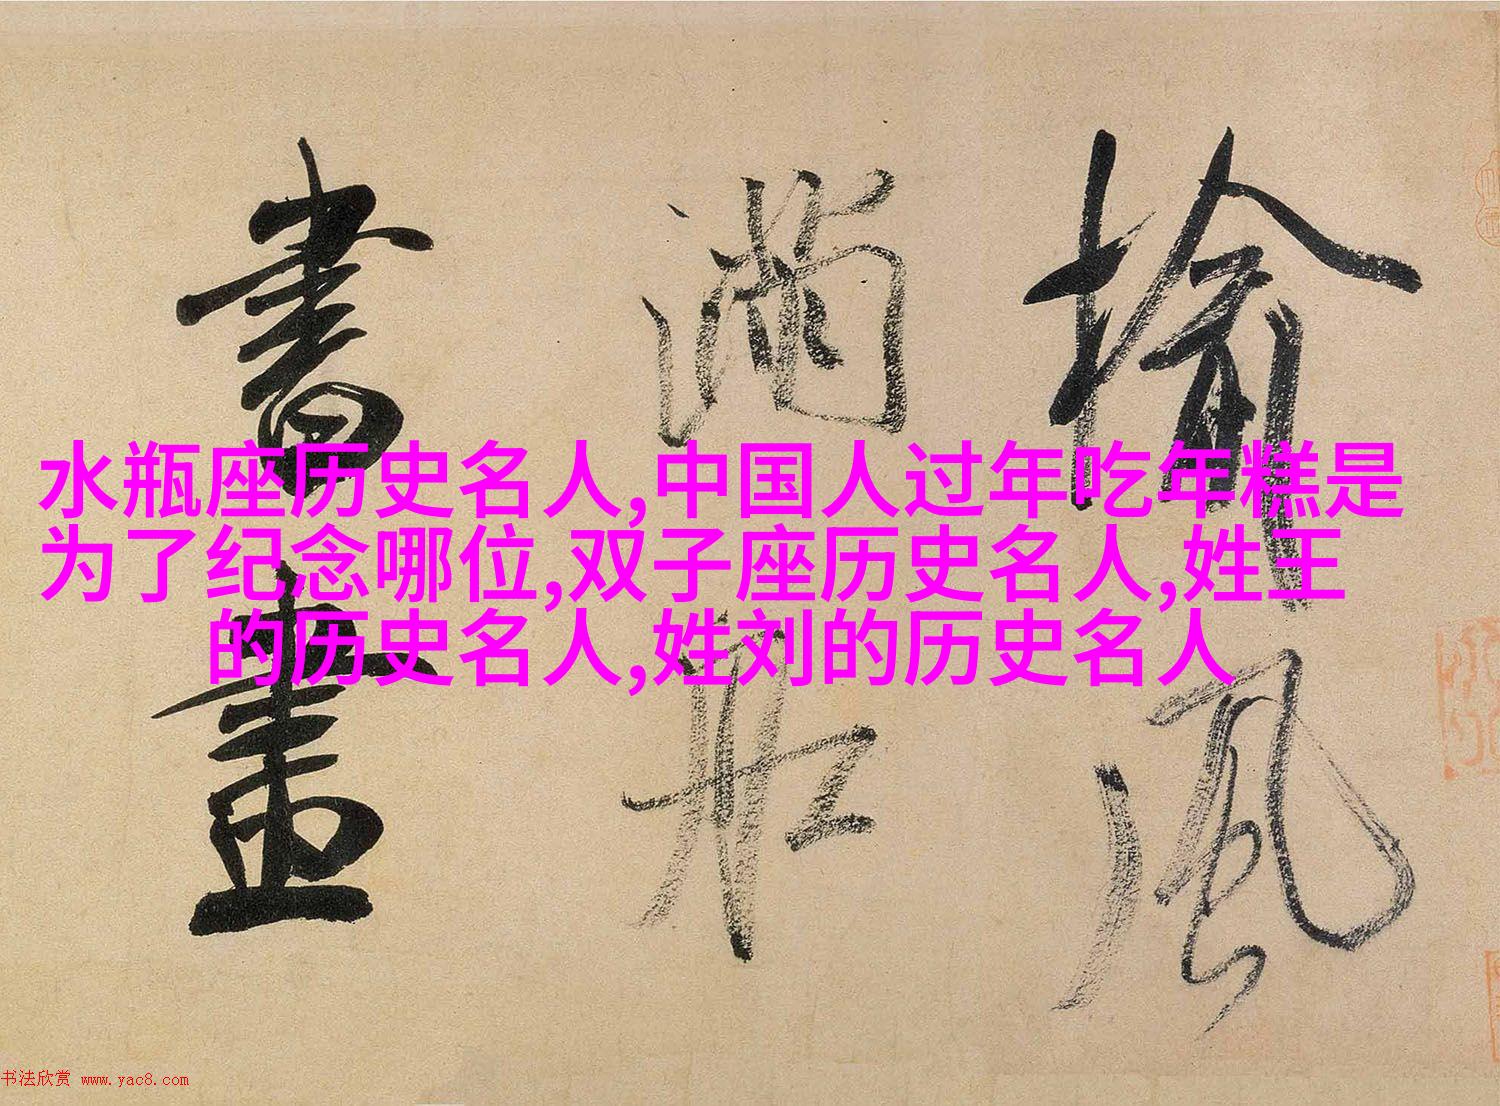 水瓶座历史名人,中国人过年吃年糕是
为了纪念哪位,双子座历史名人,姓王
的历史名人,姓刘的历史名人
揄風
滿船
書畫
书法欣赏 www.yac8.com